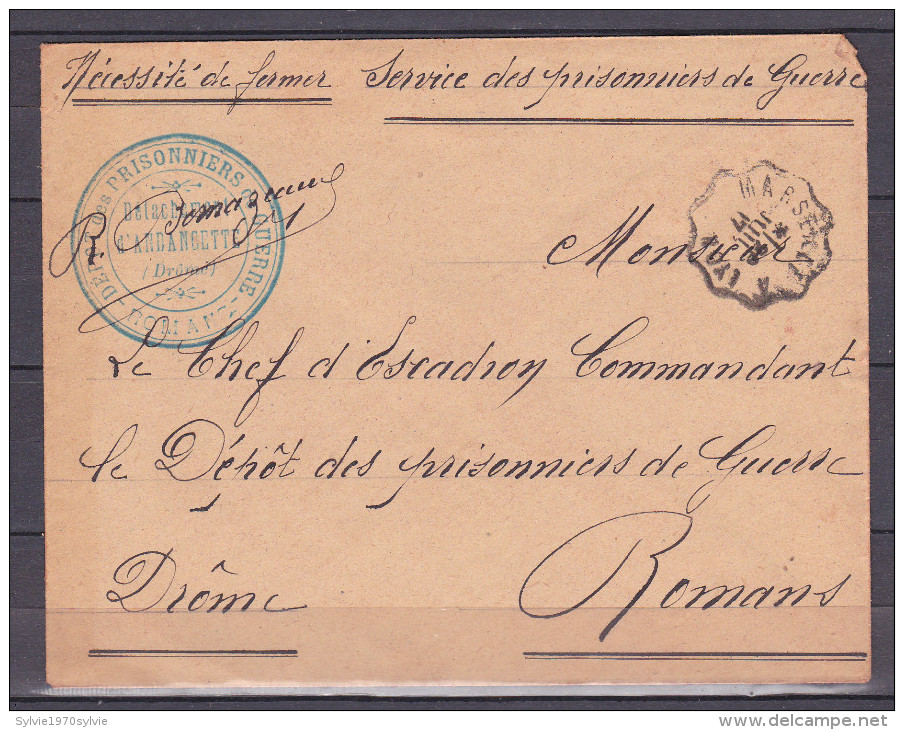 Nécessité de fermer Service des prisonniers de Guerre
DÉPÔT des PRISONNIERS de GUERRE
Détachement
d'ANDANCETTE
(Drôme)
- ROMANS -
MARSEILLE A LYON
Monsieur
Le Chef d'Escadron Commandant
le Dépôt des prisonniers de Guerre
Romans
Drôme
Sylvie1970sylvie
www.delcampe.net